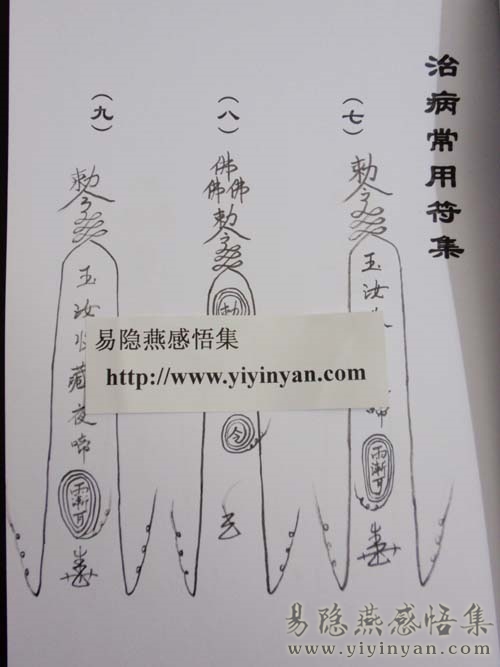 治病常用符集
（七）
勅令
玉汝
雨漸耳
（八）
佛
佛佛
勅令
勅
令
（九）
勅令
玉汝
藏夜啼
雨漸耳
易隐燕感悟集
http://www.yiyinyan.com
易隐燕感悟集
www.yiyinyan.com